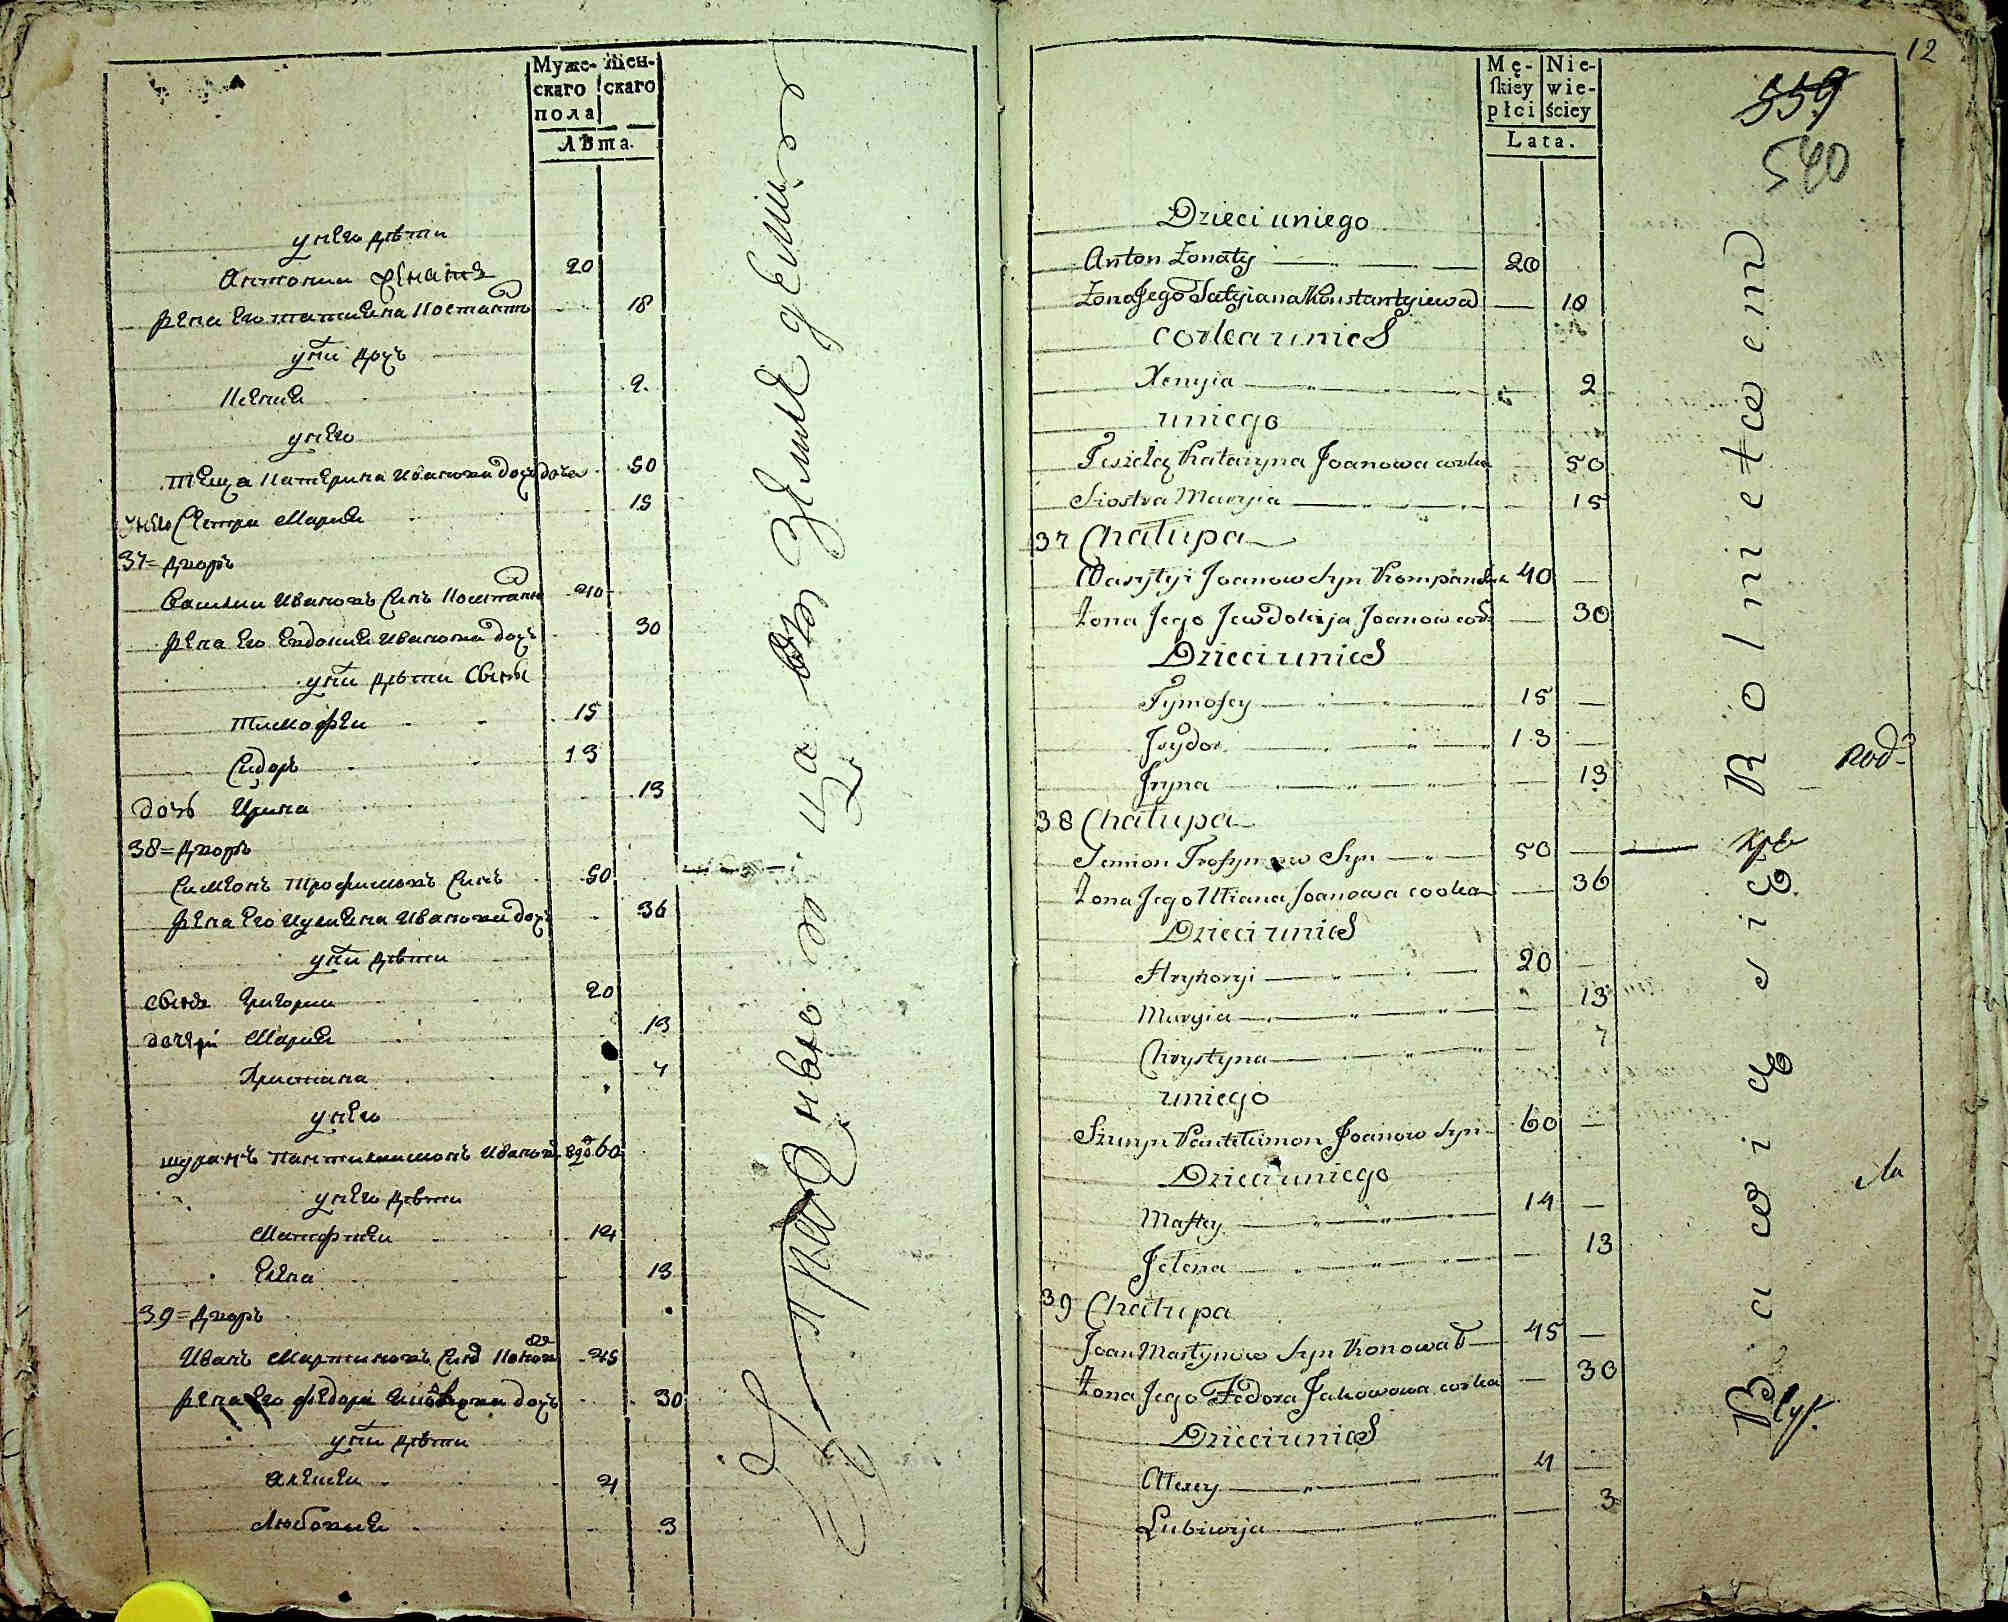 Муже-
скаго
пола
Жен-
скаго
Лѣта.
у него дѣти
Антонии женатъ 20
жена его татиена Костантъ 18
у нй дочъ
Ксение 2
у него
теща Катерина Иванова дочъ 50
у него Сестра Мария 15
37 = дворъ
Василии Ивановъ Синъ 40
жена его Евдокие Иванова дочъ 30
у нй дѣти Сыны
тимофеи 15
Сидоръ 13
дочь Ирина 13
38 = дворъ
Симеонъ трофимовъ Синъ 50
жена его Иулиена Иванова дочъ 36
у нй дѣти
сынъ Григории 20
дочери Мария 13
Христина 7
у него
шуринъ пантилимонъ Иванов вдо 60
у него дѣти
Матофтеи 14
Елена 13
39 = дворъ
Иванъ Мартиновъ Синъ 45
жена его федора дочъ 30
у нй дѣти
Алексеи 4
Любовия 3
Упражняюца въ Земледелии
12
Mę-
ſkiey
płci
Nie-
wie-
ściey
Lata.
559
540
Dzieci uniego
Anton Zonaty 20
Zona Jego Tatyiana Konstantyiewa 18
corka unich
Xenyia 2
uniego
Teszcza Kataryna Joanowa corka 50
Siostra Maryia 15
37 Chałupa
Wasylyi Joanow Syn 40
Zona Jego Jewdokija Joanow cor 30
Dzieci unich
Tymofey 15
Jzydor 13
Jryna 13
38 Chałupa
Semion Trofymow Syn 50
Zona Jego Uliana Joanowa corka 36
Dzieci unich
Hryhoryi 20
Maryia 13
Chrystyna 7
uniego
Szuryn Pantilimon Joanow Syn 60
Dzieci uniego
Maftey 14
Jelena 13
39 Chałupa
Joan Martynow Syn Konował 45
Zona Jego Fedora Jakowowa corka 30
Dzieci unich
Alexey 4
Lubiwija 3
Bawią się Rolnictwem